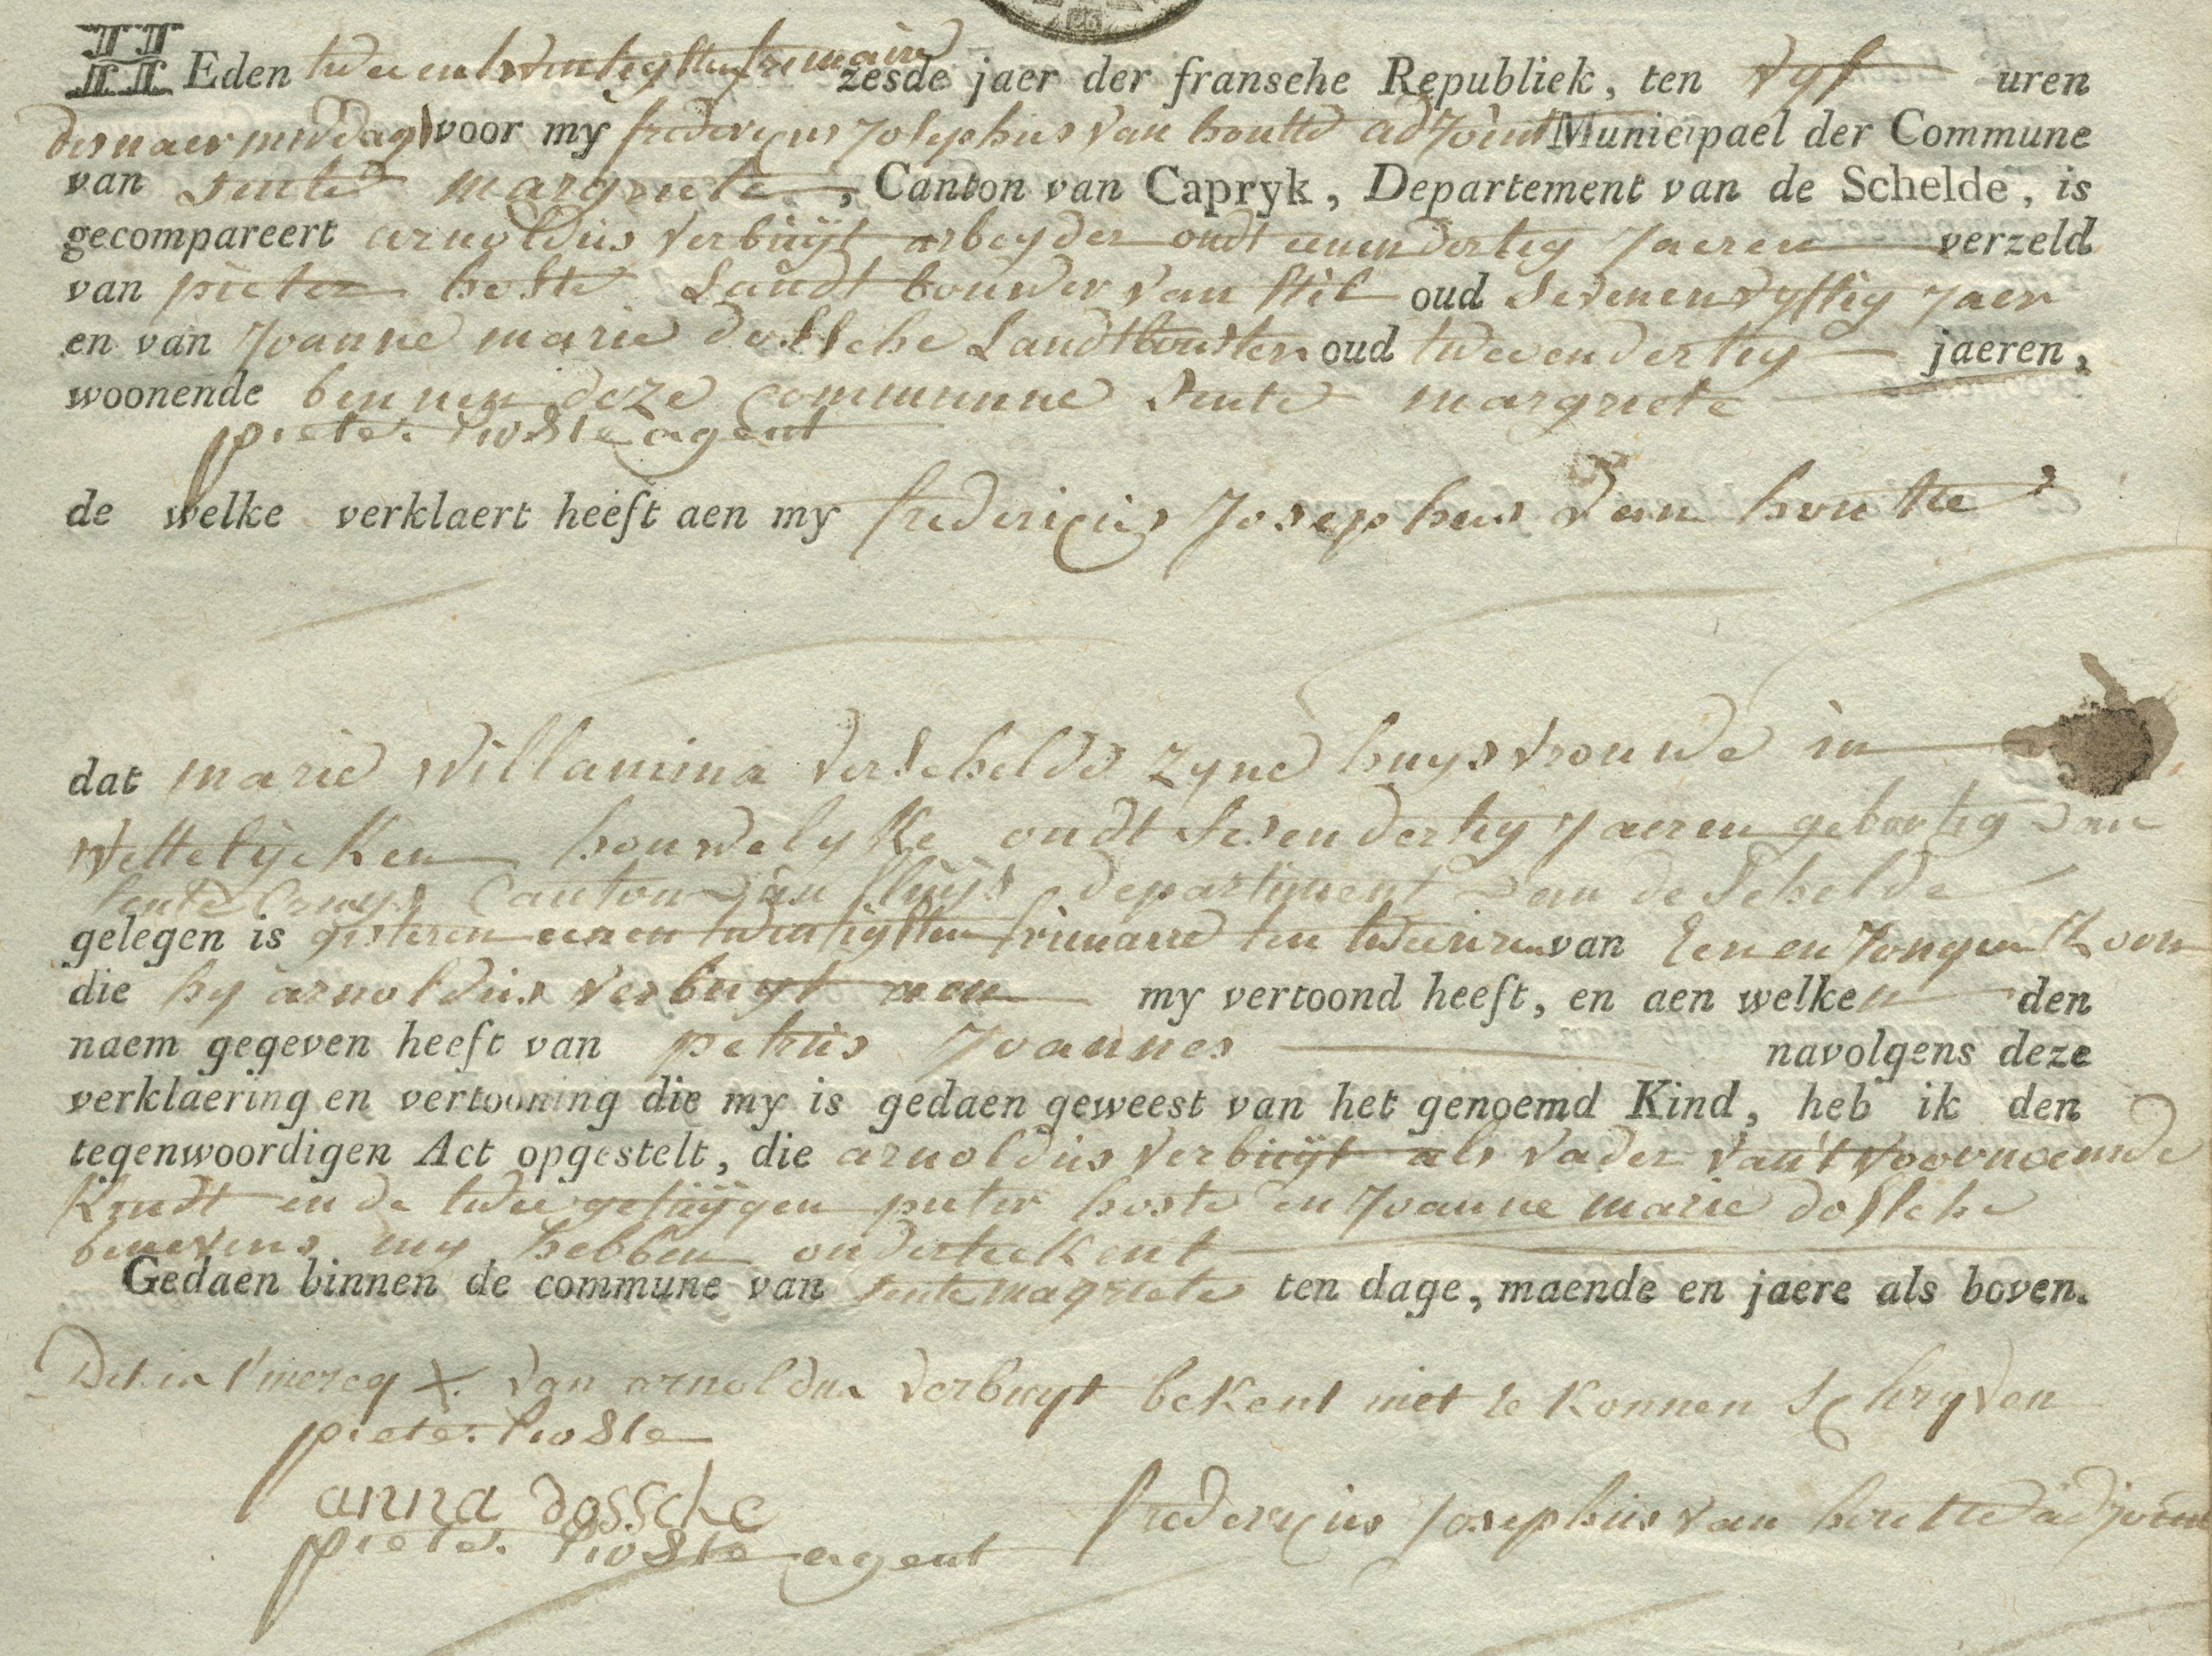 HEden twee entwintigsten frimaire zesde jaer der fransche Republiek, ten vyf uren
des naermiddags voor my fredericus Josephus Van houtte adjoint Municipael der Commune
van sente margriete, Canton van Capryk, Departement van de Schelde, is
gecompareert arnoldus verbuijt arbeyder oudt eenendertig Jaeren verzeld
van pieter hoste Landtbouwer van stil oud sevenenvyftig Jaer
en van Joanne marie dossche Landtbouster oud tweeendertig jaeren,
woonende bennen deze communne sente margriete
pieter hoste agent
de welke verklaert heeft aen my fredericus Josephus Van houtte
dat marie Willamina verschelde zyne huysvrouwe in
wettelijcken houwelyke oudt sesendertig Jaeren gebortig van
sente Cruys Canton van sluijs departiment van de Schelde
gelegen is gisteren eenen twentigsten frimaire ten twee uren van Eenen Jongen Zoon
die hy arnoldus verbuyt aen my vertoond heeft, en aen welken den
naem gegeven heeft van petrus Joannes navolgens deze
verklaering en vertooning die my is gedaen geweest van het genoemd Kind, heb ik den
tegenwoordigen Act opgestelt, die arnoldus verbuijt als vader van't voornoemde
Kindt en de twee getuijgen pieter hoste en Joanne marie dossche
benevens my hebben onderteekent
Gedaen binnen de commune van sente magriete ten dage, maende en jaere als boven.
Dit is t'mercq X van arnoldus verbuyt bekent niet te konnen schryven
pieter hoste
anna dossche
pieter hoste agent
fredericus Josephus van houtte adjoint